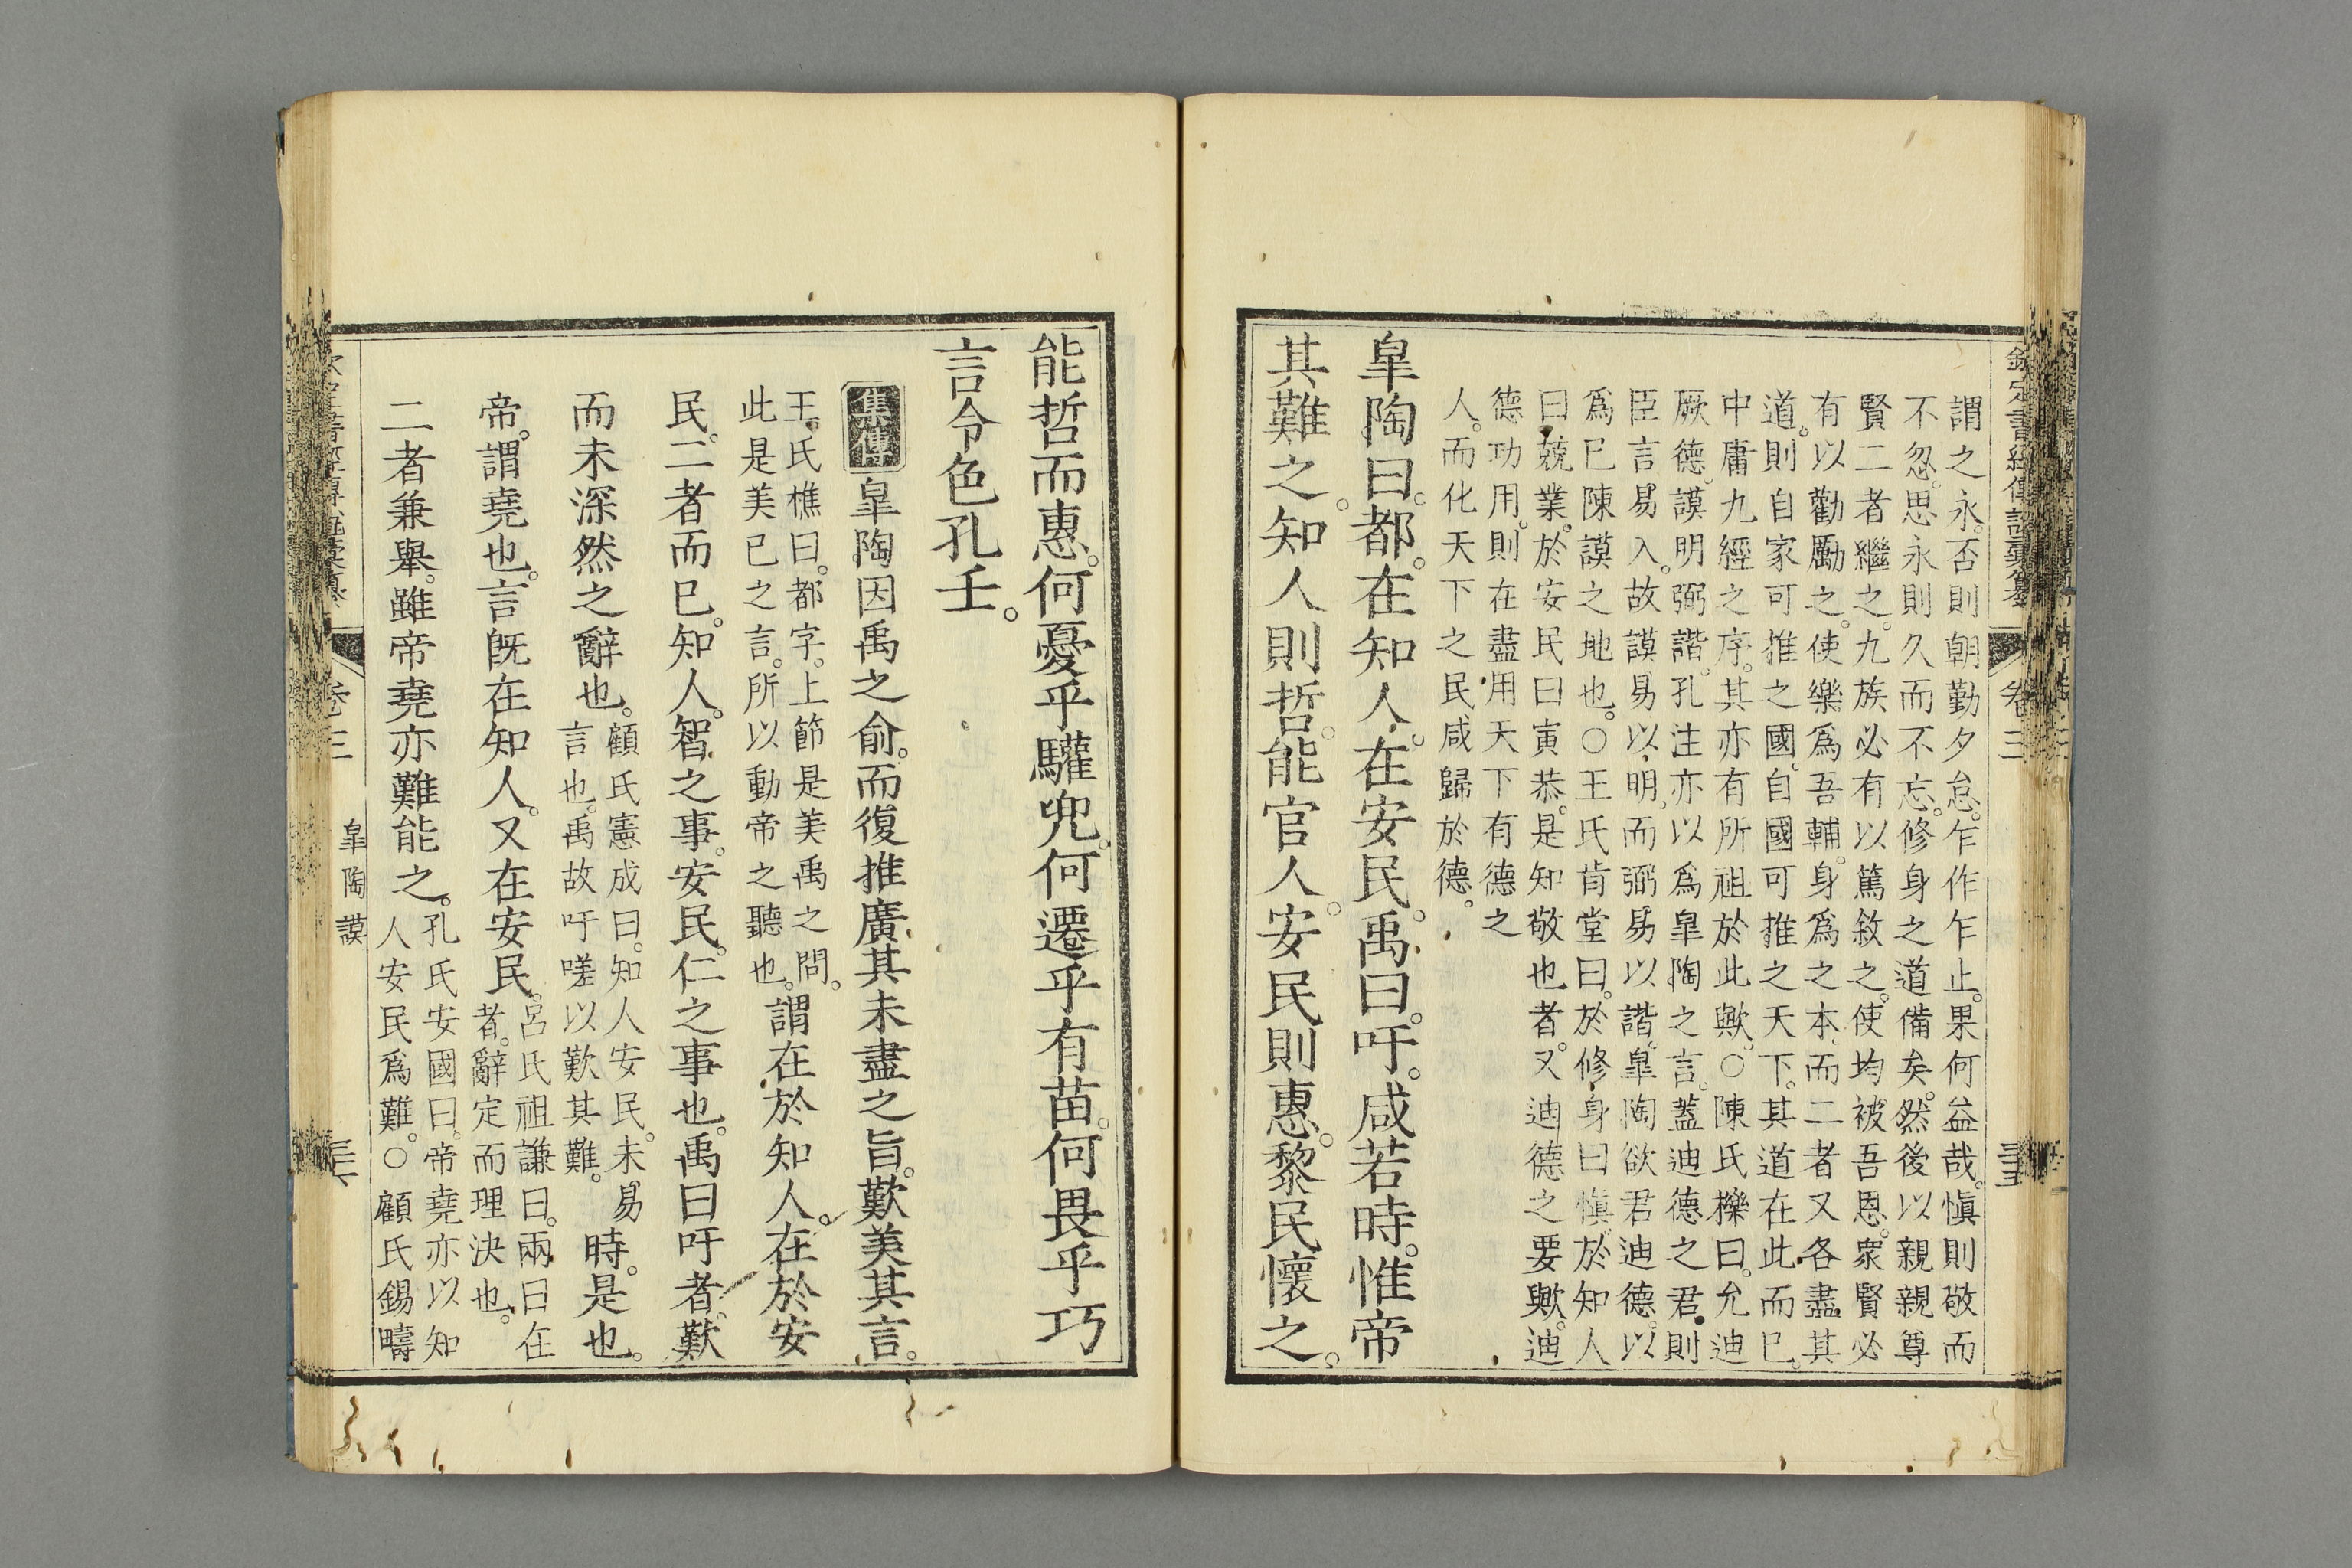 欽定書經傳說彙纂 卷三
謂之永。否則朝勤夕怠。乍作乍止。果何益哉。愼則敬而
不忽。思永則久而不忘。修身之道備矣。然後以親親尊
賢二者繼之。九族必有以篤敘之。使均被吾恩。衆賢必
有以勸勵之。使樂爲吾輔。身爲之本。而二者又各盡其
道。則自家可推之國。自國可推之天下。其道在此而已。
中庸九經之序。其亦有所祖於此歟。○陳氏櫟曰。允迪
厥德。謨明弼諧。孔注亦以爲皐陶之言。蓋迪德之君。則
臣言易入。故謨易以明。而弼易以諧。皐陶欲君迪德。以
爲已陳謨之地也。○王氏肯堂曰。於修身曰愼。於知人
曰兢業。於安民曰寅恭。是知敬也者。又迪德之要歟。迪
德功用。則在盡用天下有德之
人。而化天下之民咸歸於德。
皐陶曰。都。在知人。在安民。禹曰。吁。咸若時。惟帝
其難之。知人則哲。能官人。安民則惠。黎民懷之。
能哲而惠。何憂乎驩兜。何遷乎有苗。何畏乎巧
言令色孔壬。
集傳 皐陶因禹之俞。而復推廣其未盡之旨。歎美其言。
王氏樵曰。都字。上節是美禹之問。
此是美已之言。所以動帝之聽也。
謂在於知人。在於安
民。二者而已。知人。智之事。安民。仁之事也。禹曰吁者。歎
而未深然之辭也。
顧氏憲成曰。知人安民。未易
言也。禹故吁嗟以歎其難。
時。是也。
帝。謂堯也。言旣在知人。又在安民。
呂氏祖謙曰。兩曰在
者。辭定而理決也。
二者兼舉。雖帝堯亦難能之。
孔氏安國曰。帝堯亦以知
人安民爲難。○顧氏錫疇
卷三 皐陶謨